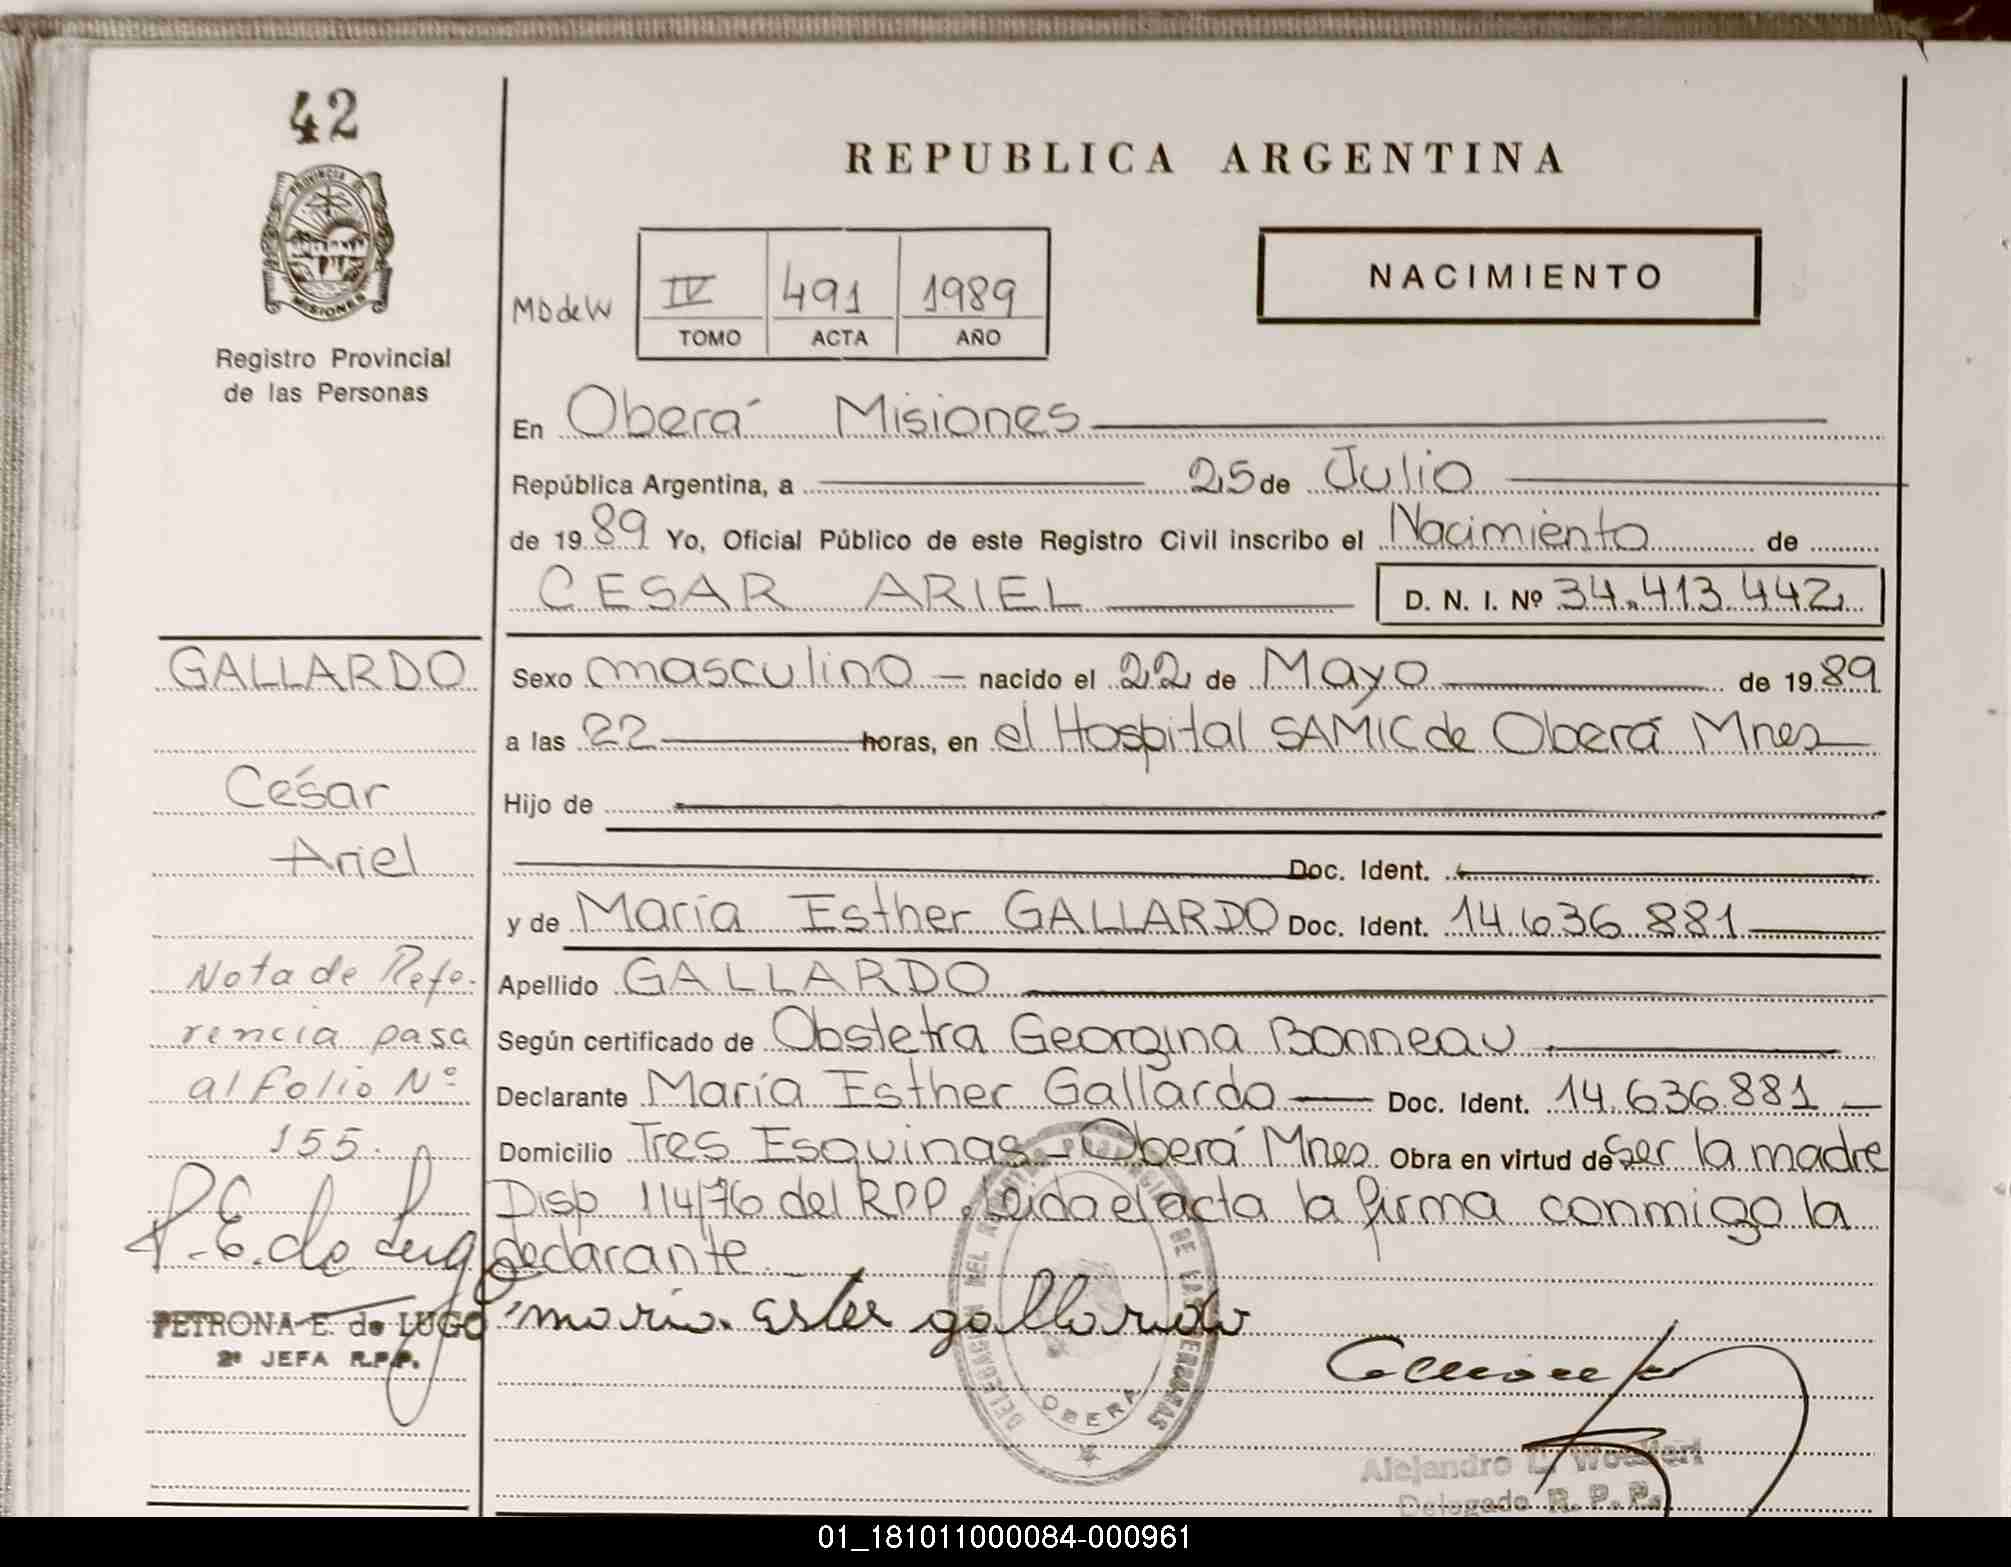 42
PROVINCIA DE
MISIONES
Registro Provincial
de las Personas
REPUBLICA ARGENTINA
NACIMIENTO
MDdeW
IV 491 1989
TOMO ACTA AÑO
En Oberá Misiones
República Argentina, a 25 de Julio
de 1989 Yo, Oficial Público de este Registro Civil inscribo el Nacimiento de
CESAR ARIEL D. N. I. Nº 34.413.442
GALLARDO
César
Ariel
Nota de Refe-
rencia pasa
al folio Nº
155.
P.E. de Lugo
PETRONA E. de LUGO
2º JEFA R.P.P.
Sexo masculino nacido el 22 de Mayo de 1989
a las 22 horas, en el Hospital SAMIC de Oberá Mnes
Hijo de
Doc. Ident.
y de María Esther GALLARDO Doc. Ident. 14.636.881
Apellido GALLARDO
Según certificado de Obstetra Georgina Bonneau
Declarante María Esther Gallardo Doc. Ident. 14.636.881
Domicilio Tres Esquinas - Oberá Mnes. Obra en virtud de ser la madre
Disp 114/76 del RPP. Leida el acta la firma conmigo la
declarante.
maria Ester gallardo
DELEGACION DEL REGISTRO PROVINCIAL DE LAS PERSONAS
OBERA
Alejandro
Delegado R. P. P.
01_181011000084-000961